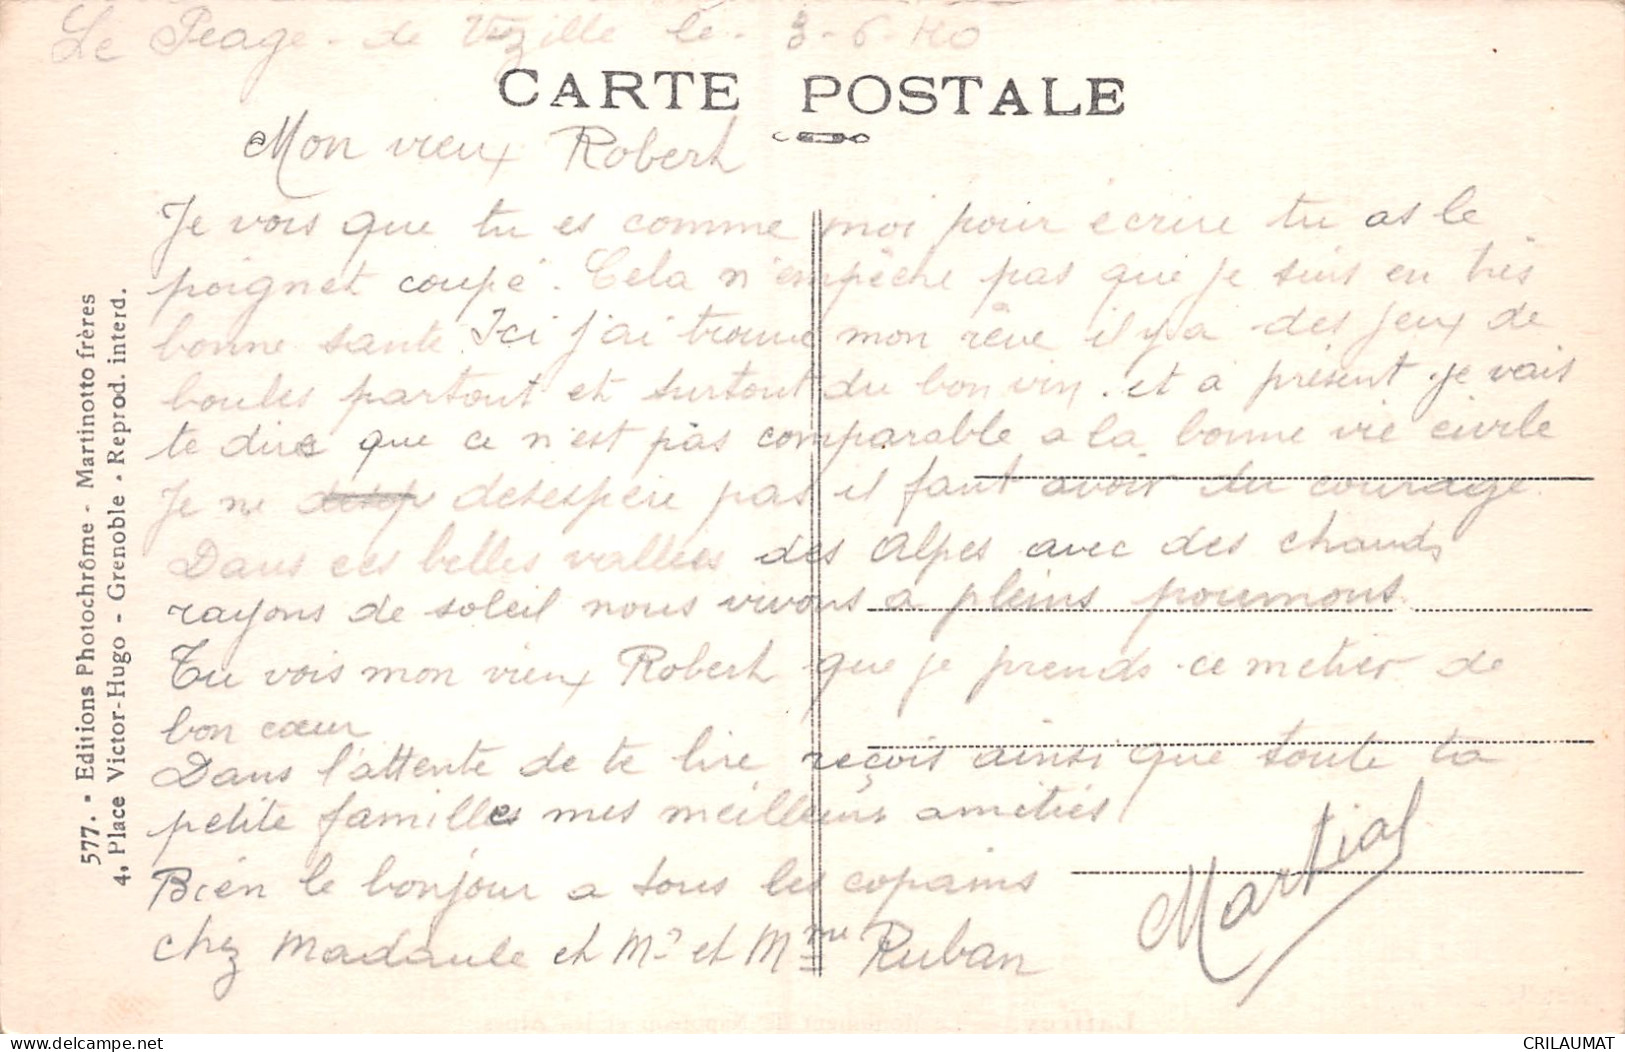 Le Peage - de Vizille le - 3-6-40
CARTE POSTALE
Mon vieux Robert
Je vois que tu es comme moi pour écrire tu as le
poignet coupé. Cela n'empêche pas que je suis en très
bonne santé. Ici j'ai trouvé mon rêve il y a des jeux de
boules partout et surtout du bon vin. et a présent je vais
te dire que ce n'est pas comparable a la bonne vie civile
Je ne desespère pas il faut avoir du courage.
Dans ces belles vallées des Alpes avec des chauds
rayons de soleil nous vivons a pleins poumons.
Tu vois mon vieux Robert que je prends ce metier de
bon cœur
Dans l'attente de te lire reçois ainsi que toute ta
petite familles mes meilleurs amitiés
Bien le bonjour a tous les copains
chez Madaule et Mr et Mme Ruban
Martial
577. - Editions Photochrôme - Martinotto frères
4, Place Victor-Hugo - Grenoble - Reprod. interd.
CRILAUMAT